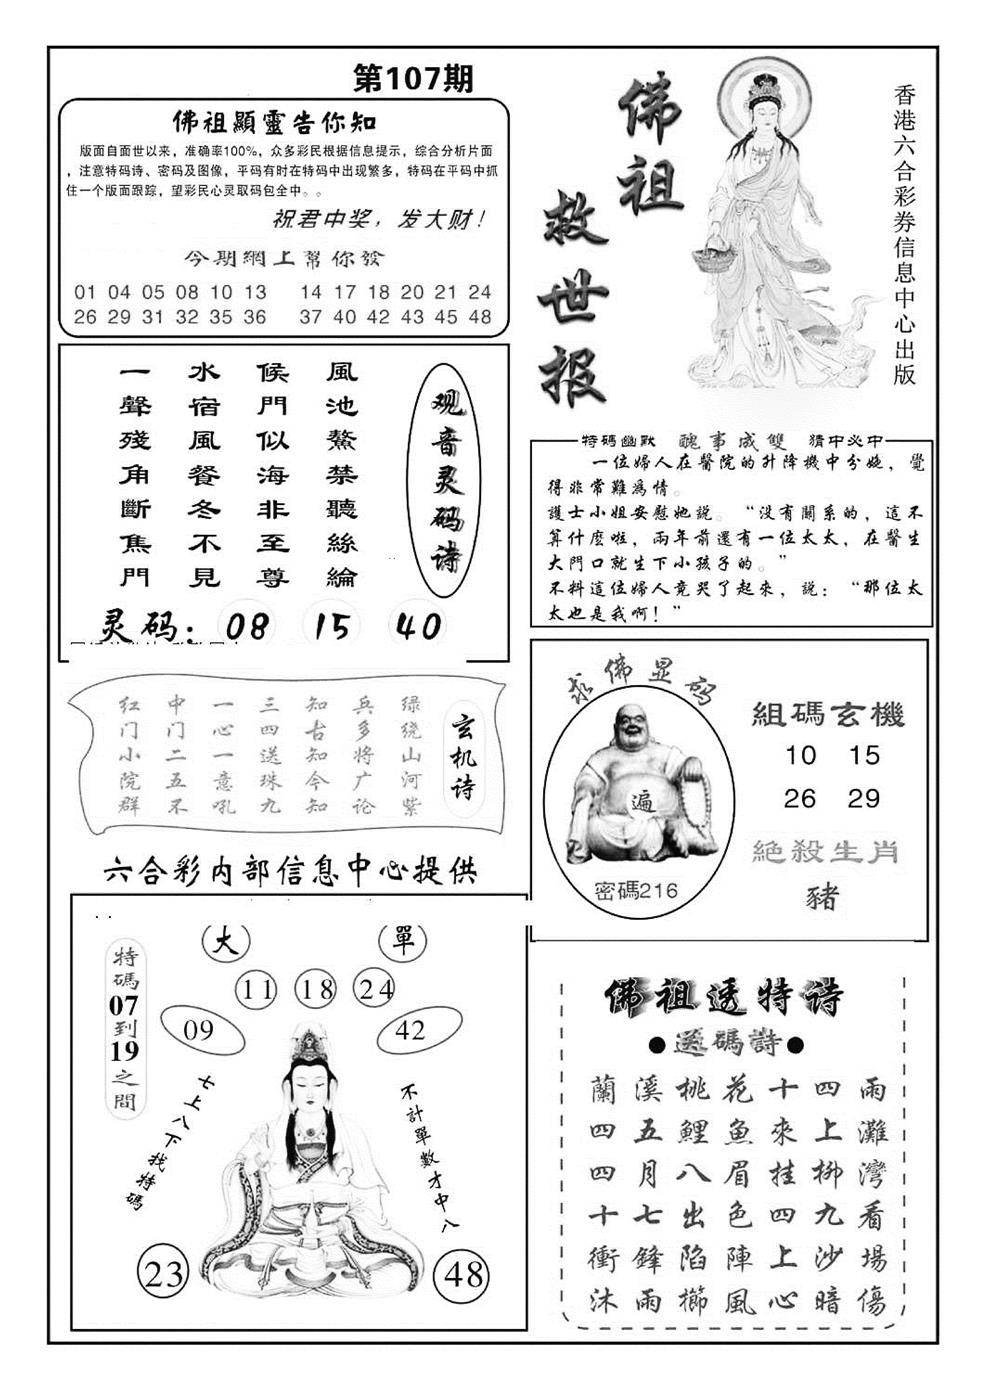 第107期
佛祖顯靈告你知
版面自面世以来，准确率100%，众多彩民根据信息提示，综合分析片面
，注意特码诗、密码及图像，平码有时在特码中出现繁多，特码在平码中抓
住一个版面跟踪，望彩民心灵取码包全中。。
祝君中奖，发大财！
今期網上幫你發
01 04 05 08 10 13 14 17 18 20 21 24
26 29 31 32 35 36 37 40 42 43 45 48
佛祖
救世报
香港六合彩券信息中心出版
观音灵码诗
風池鰲禁聽絲綸
候門似海非至尊
水宿風餐冬不見
一聲殘角斷焦門
灵码：08 15 40
特碼幽默 醜事成雙 猜中必中
一位婦人在醫院的升降機中分娩，覺
得非常難爲情。
護士小姐安慰她說。“没有關系的，這不
算什麼啦，兩年前還有一位太太，在醫生
大門口就生下小孩子的。”
不料這位婦人竟哭了起來，説：“那位太
太也是我啊！”
玄机诗
绿绕山河紫
兵多将广论
知古知今知
三四送珠九
一心一意吼
中门二五不
红门小院群
六合彩内部信息中心提供
求佛显码
遍
密碼216
組碼玄機
10 15
26 29
絕殺生肖
豬
大 單
11 18 24
09 42
特碼07到19之間
七上八下找特碼
不計單數才中八
23 48
佛祖透特诗
●送碼詩●
蘭溪桃花十四雨
四五鯉魚來上灘
四月八眉挂柳灣
十七出色四九看
衝鋒陷陣上沙場
沐雨櫛風心暗傷